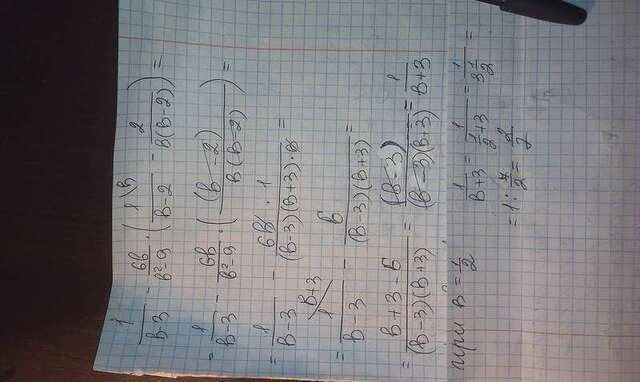 1/(в-3) - 6в/(в²-9) · (1\в/(в-2) - 2/(в(в-2))) =
= 1/(в-3) - 6в/(в²-9) · ((в-2)/(в(в-2))) =
= 1/(в-3) - 6в · 1/((в-3)(в+3)·в) =
= 1\в+3/(в-3) - 6/((в-3)(в+3)) =
= (в+3-6)/((в-3)(в+3)) = (в-3)/((в-3)(в+3)) = 1/(в+3)
при в = 1/2   1/(в+3) = 1/(1/2+3) = 1/(3 1/2) =
= 1 : 7/2 = 2/7